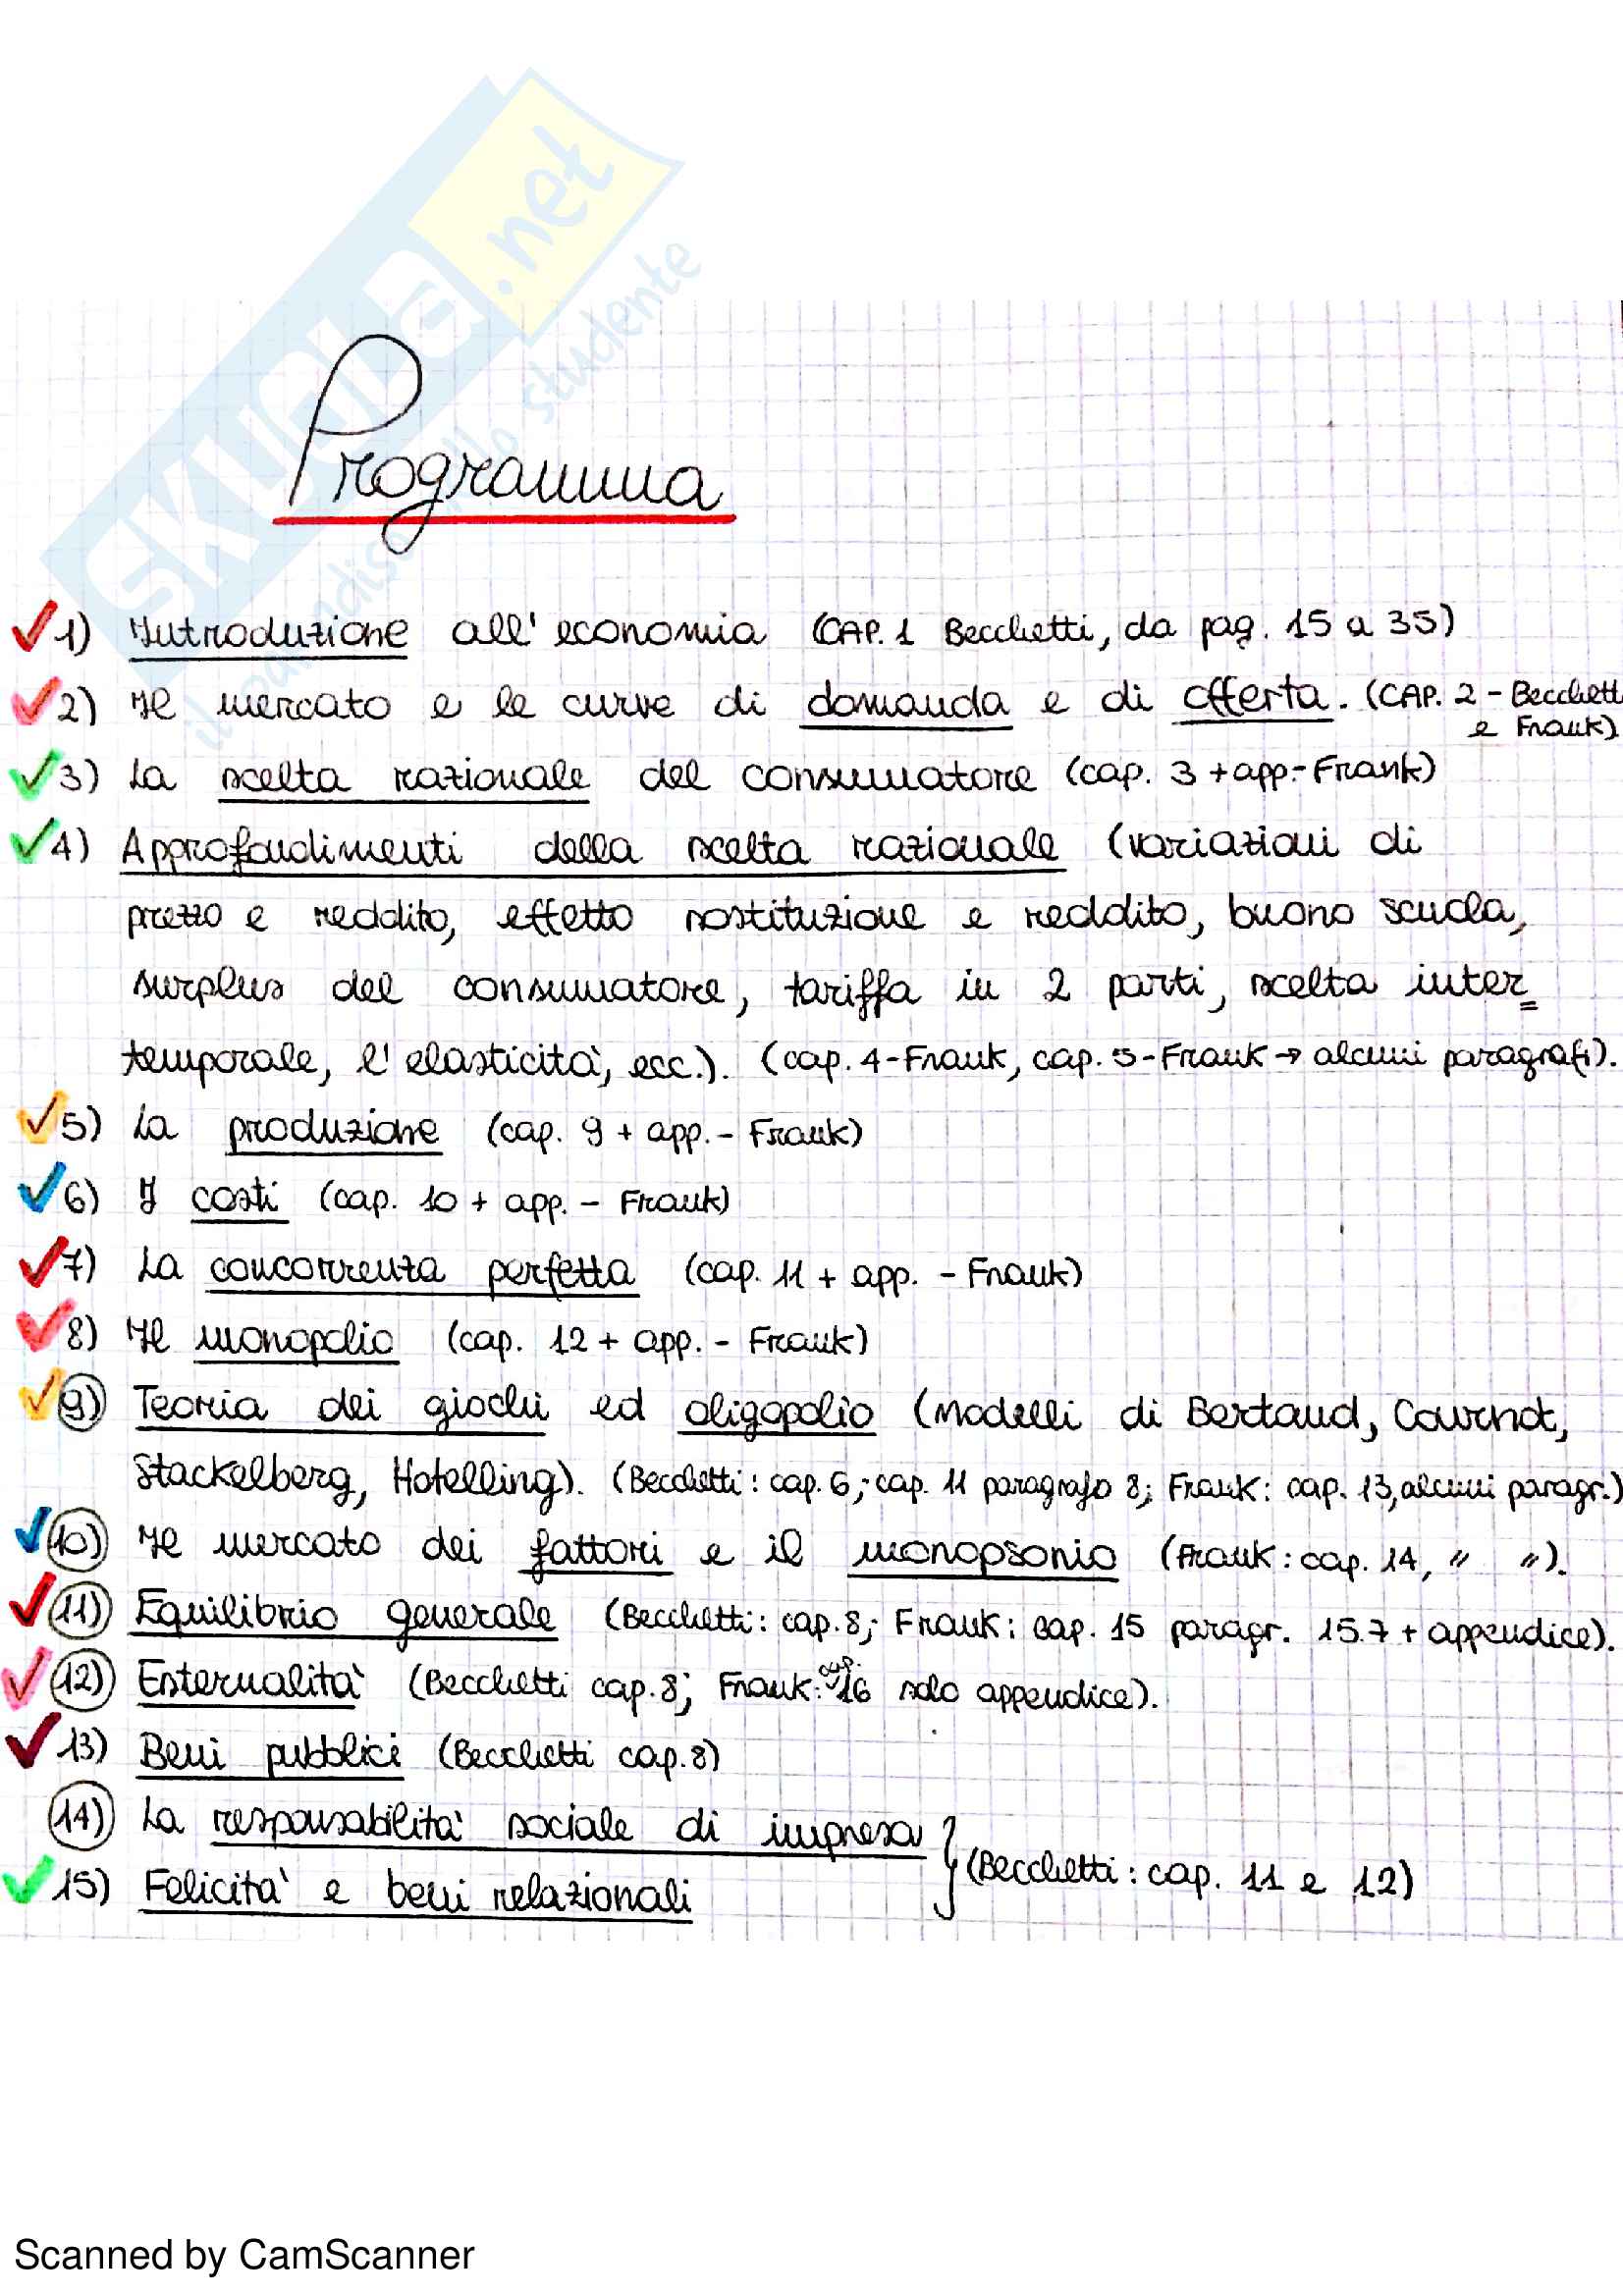 SKUOLA.net
il paradiso dello studente
Programma
1) Introduzione all'economia (CAP. 1 Becchetti, da pag. 15 a 35)
2) Il mercato e le curve di domanda e di offerta. (CAP. 2 - Becchetti
e Frank)
3) La scelta razionale del consumatore (cap. 3 + app. - Frank)
4) Approfondimenti della scelta razionale (variazioni di
prezzo e reddito, effetto sostituzione e reddito, buono scuola,
surplus del consumatore, tariffa in 2 parti, scelta inter=
temporale, l'elasticità, ecc.). (cap. 4 - Frank, cap. 5 - Frank → alcuni paragrafi).
5) La produzione (cap. 9 + app. - Frank)
6) I costi (cap. 10 + app. - Frank)
7) La concorrenza perfetta (cap. 11 + app. - Frank)
8) Il monopolio (cap. 12 + app. - Frank)
9) Teoria dei giochi ed oligopolio (Modelli di Bertaud, Cournot,
Stackelberg, Hotelling). (Becchetti: cap. 6; cap. 11 paragrafo 8; Frank: cap. 13, alcuni paragr.)
10) Il mercato dei fattori e il monopsonio (Frank: cap. 14, " ").
11) Equilibrio generale (Becchetti: cap. 8; Frank: cap. 15 paragr. 15.7 + appendice).
12) Esternalità (Becchetti cap. 8; Frank: cap. 16 solo appendice).
13) Beni pubblici (Becchetti cap. 8)
14) La responsabilità sociale di impresa
15) Felicità e beni relazionali } (Becchetti: cap. 11 e 12)
Scanned by CamScanner